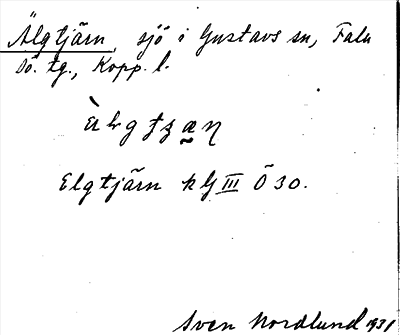 Älgtjärn, sjö i Gustavs sn, Falu
sö. tg., Kopp. l.
Elgtjärn k G III Ö 30.
Sven Nordlund 1931